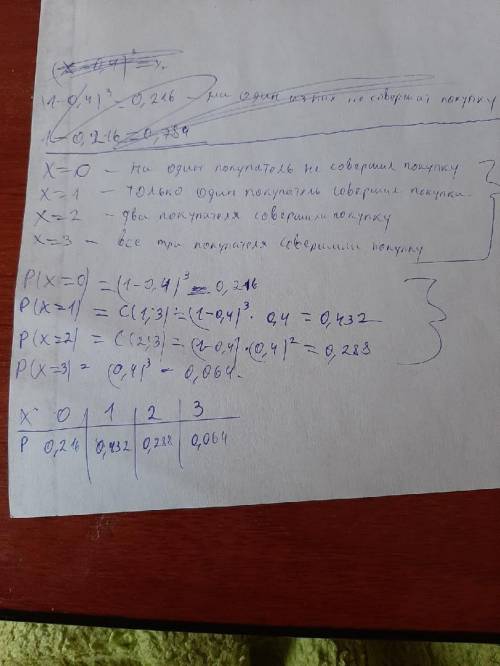 (1-0,4)³ = 0,216 - ни один из них не совершит покупку
1-0,216=0,784
X=0 - ни один покупатель не совершил покупку
X=1 - только один покупатель совершил покупку
X=2 - два покупателя совершили покупку
X=3 - все три покупателя совершили покупку
P(X=0) = (1-0,4)³ = 0,216
P(X=1) = C(1;3) · (1-0,4)³ · 0,4 = 0,432
P(X=2) = C(2;3) · (1-0,4) · (0,4)² = 0,288
P(X=3) = (0,4)³ = 0,064.
X 0 1 2 3
P 0,216 0,432 0,288 0,064